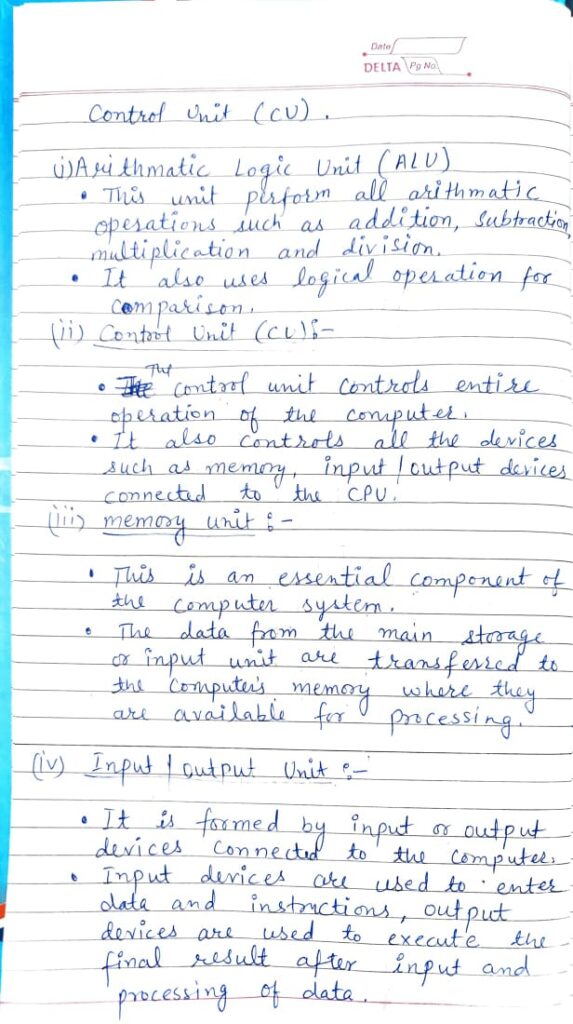 Date
DELTA Pg No.
Control Unit (CU).
(i) Arithmatic Logic Unit (ALU)
• This unit perform all arithmatic
operations such as addition, Subtraction,
multiplication and division.
• It also uses logical operation for
comparison.
(ii) Control Unit (CU):-
• The control unit controls entire
operation of the computer.
• It also controls all the devices
such as memory, input / output devices
connected to the CPU.
(iii) memory unit :-
• This is an essential component of
the computer system.
• The data from the main storage
or input unit are transferred to
the computer's memory where they
are available for processing.
(iv) Input / output Unit :-
• It is formed by input or output
devices connected to the computer.
• Input devices are used to enter
data and instructions, output
devices are used to execute the
final result after input and
processing of data.